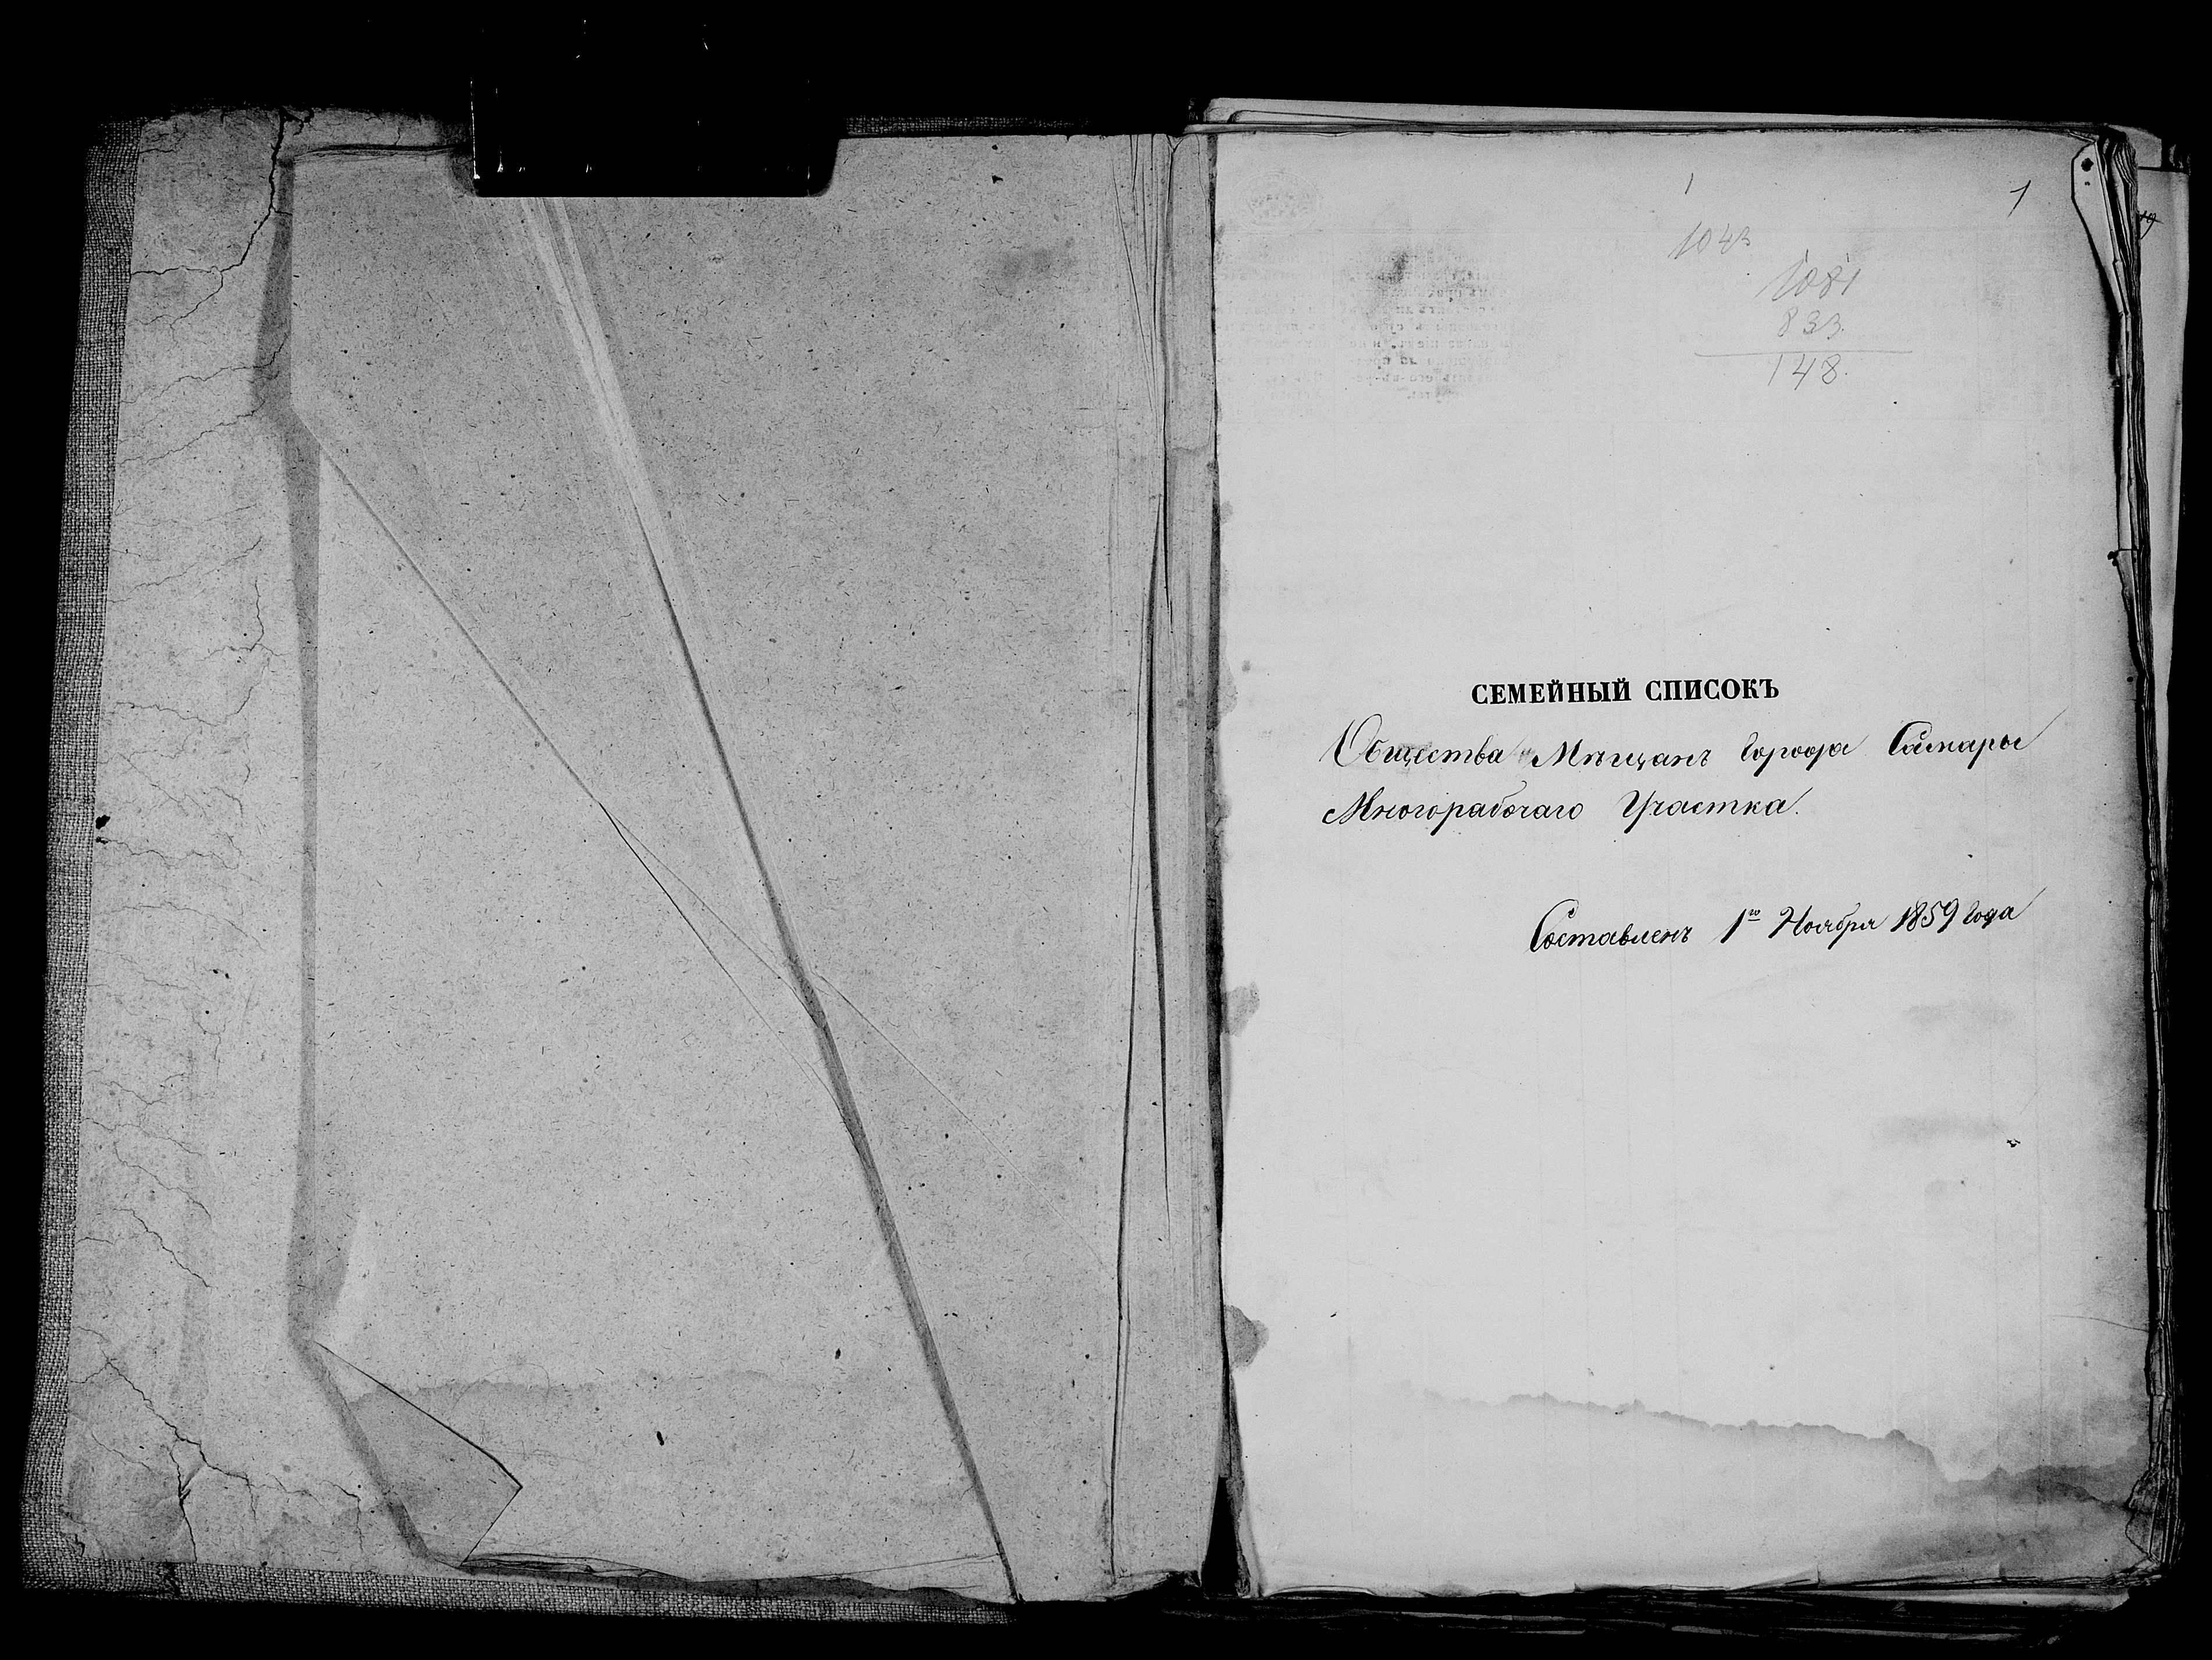 1
1
1043
1081
833.
148.
СЕМЕЙНЫЙ СПИСОКЪ
Общества Мѣщанъ Города Самары
Многорабочаго Участка.
Составленъ 1го Ноября 1859 Года